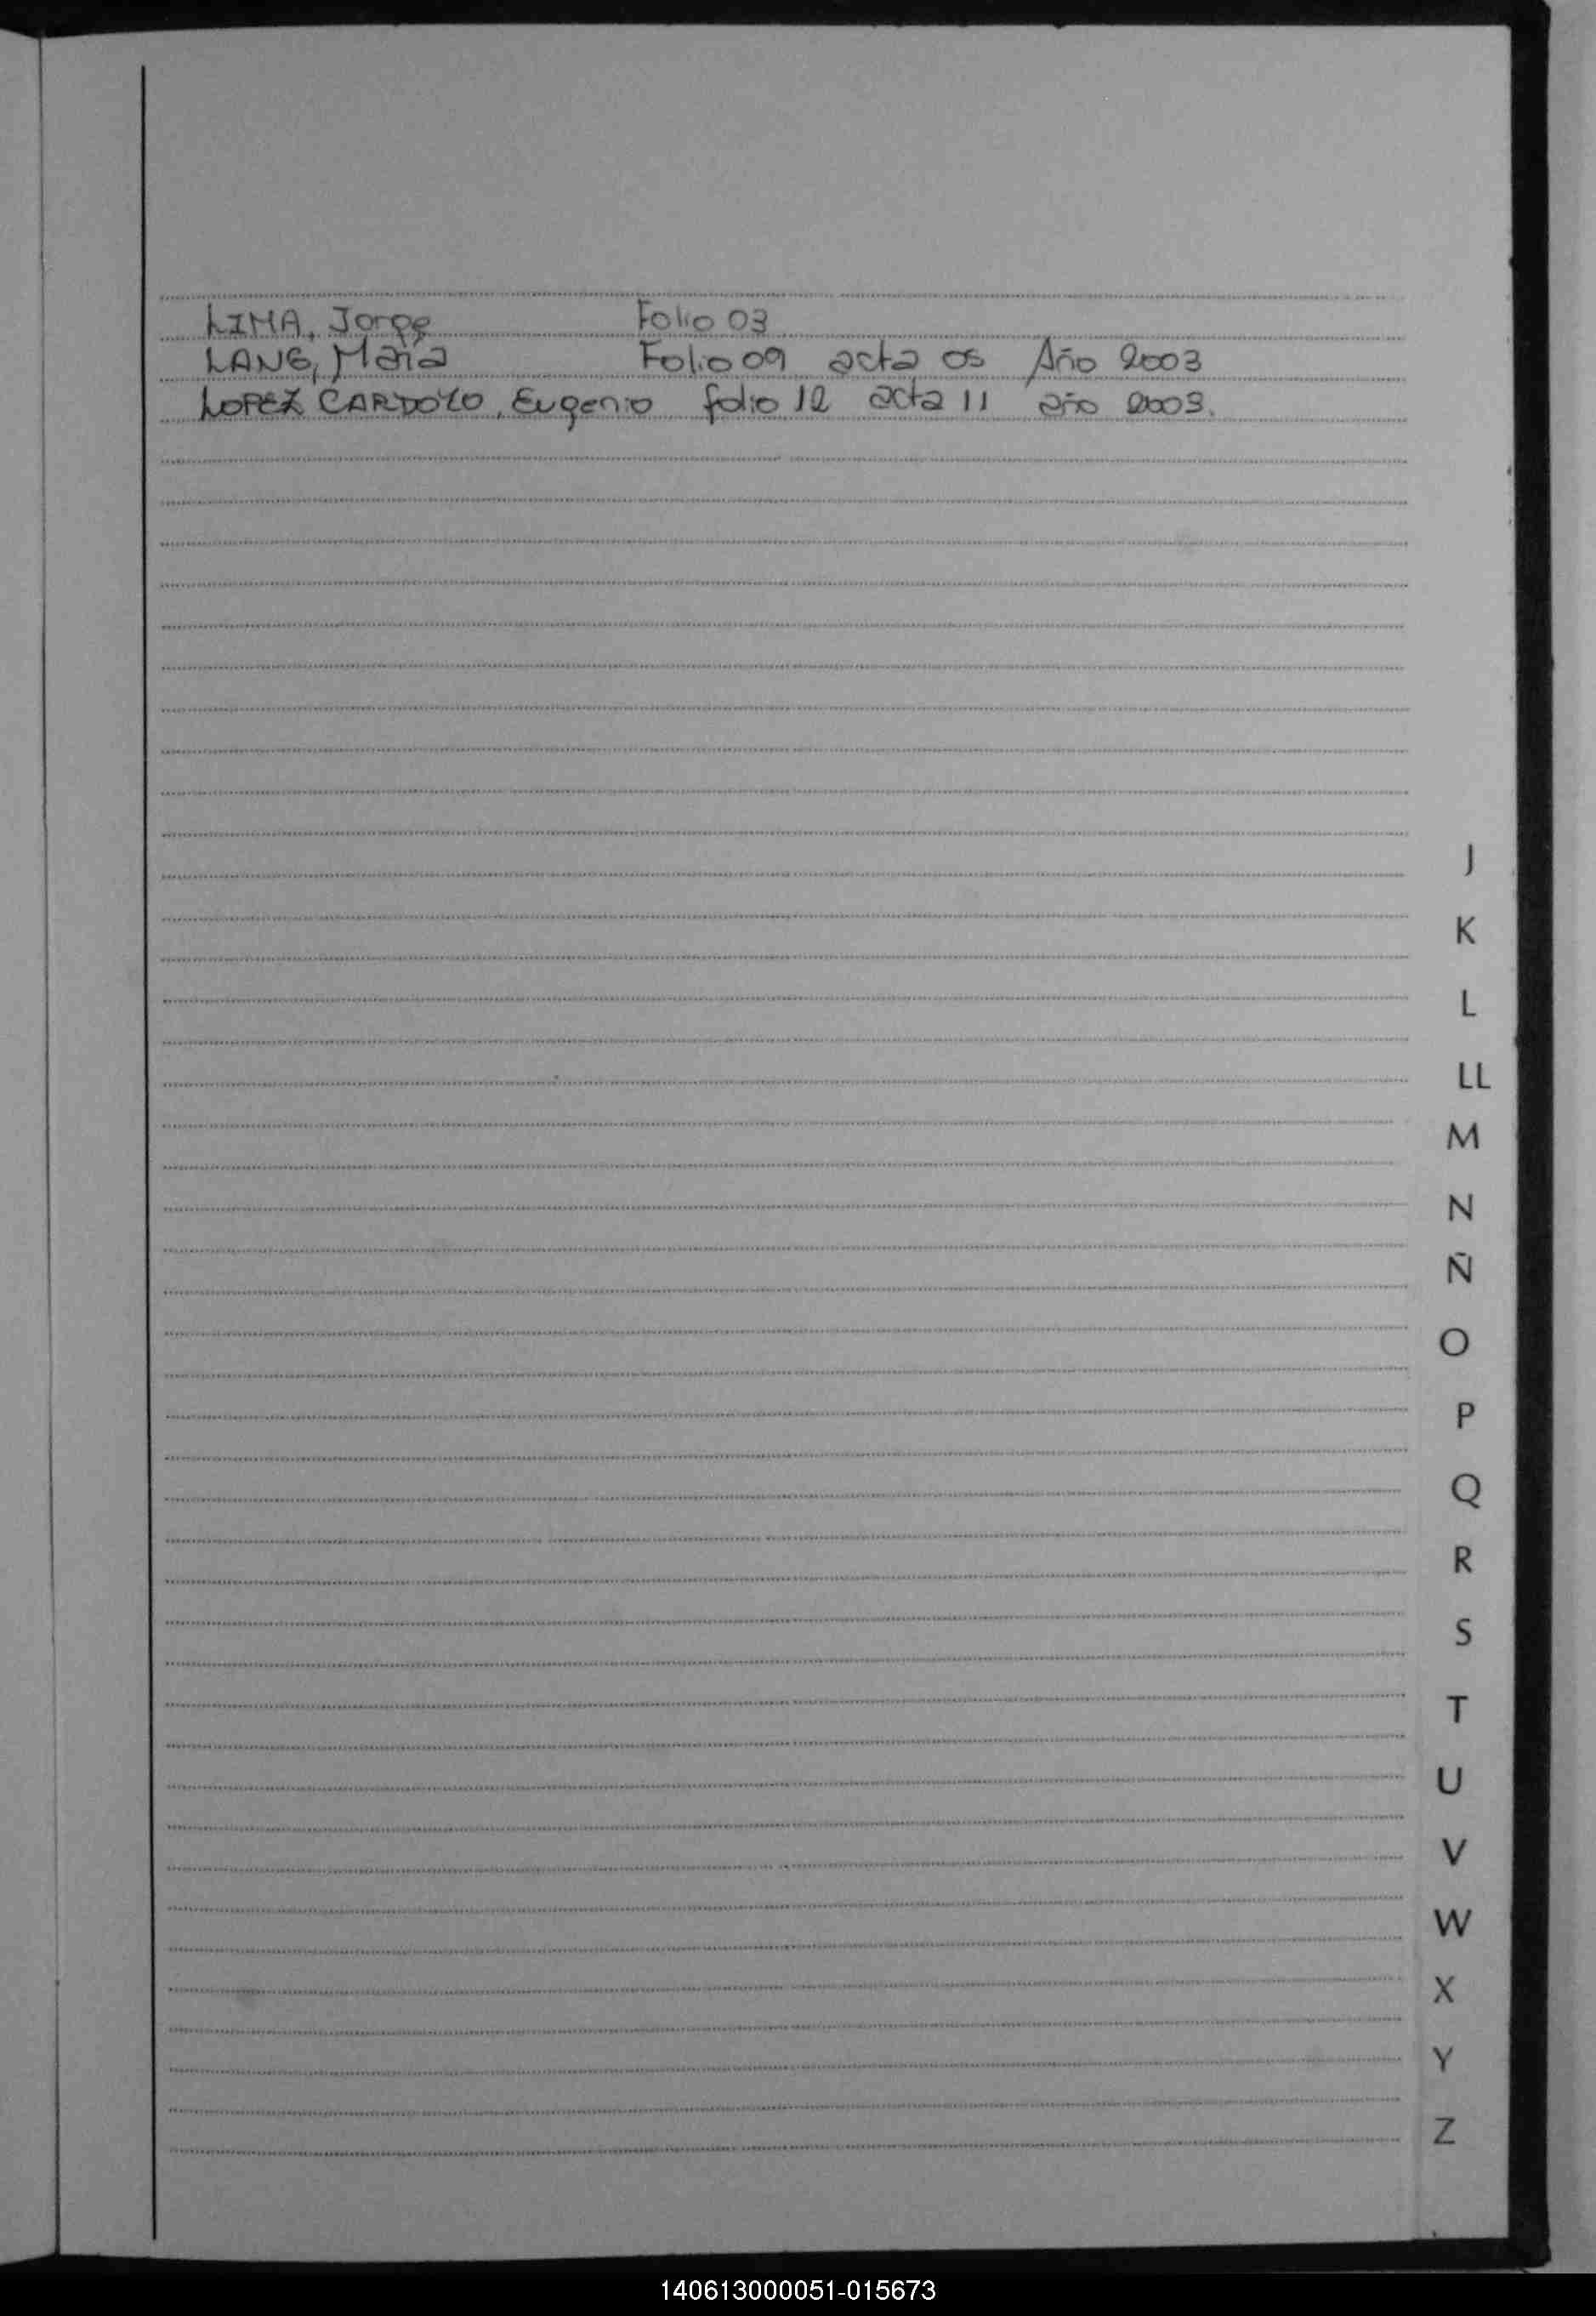 LIMA, Jorge Folio 03
LANG, María Folio 09 acta 05 Año 2003
LOPEZ CARDOZO, Eugenio folio 12 acta 11 año 2003.
J
K
L
LL
M
N
Ñ
O
P
Q
R
S
T
U
V
W
X
Y
Z
140613000051-015673